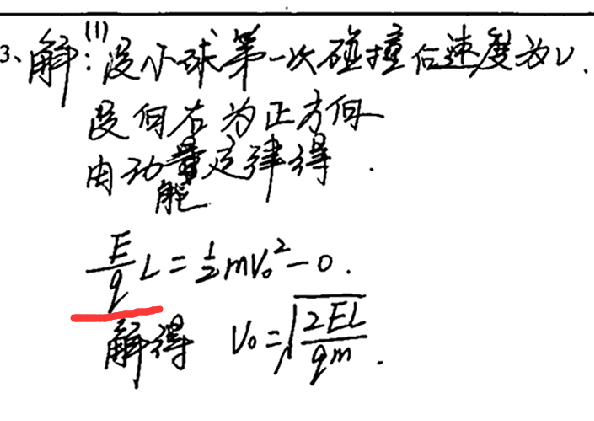 3、解:(1)设小球第一次碰撞后速度为v.
设向右为正方向
由动量定律得.
能
E/q L=1/2 mv₀²-0.
解得 v₀=√(2EL/qm).